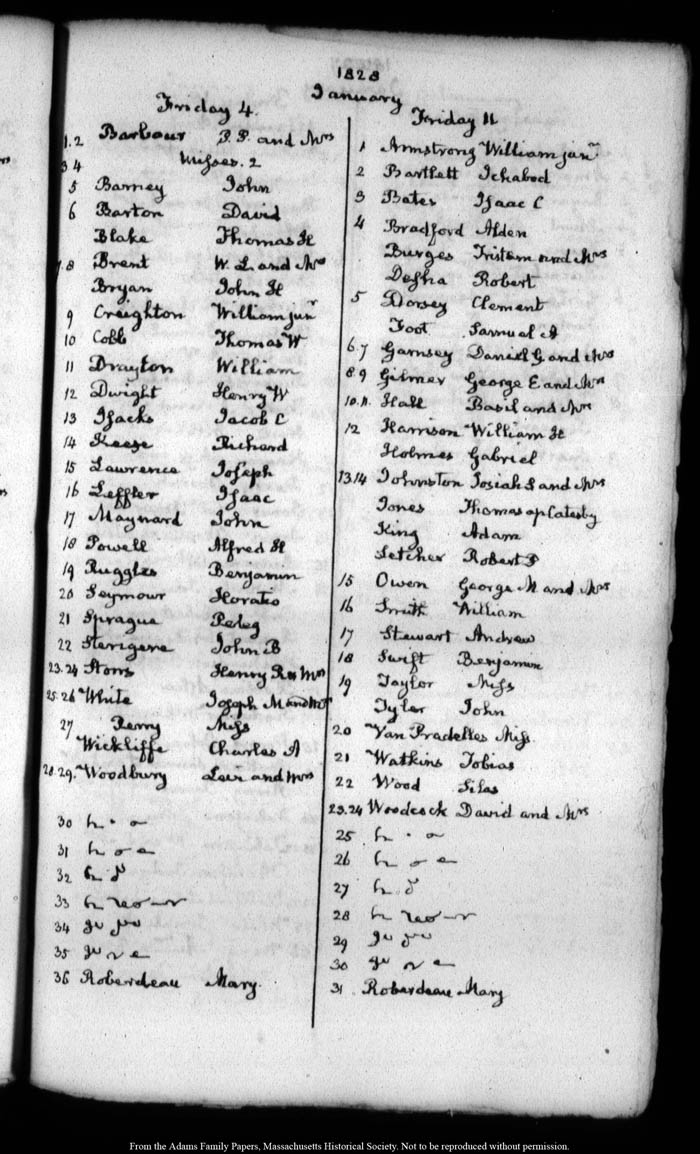 1828
January
Friday 4.
1.2 Barbour P.P. and Mrs
3.4 Misses. 2
5 Barney John
6 Barton David
Blake Thomas H
7.8 Brent W. L. and Mrs
Bryan John H
9 Creighton William junr
10 Cobb Thomas W
11 Drayton William
12 Dwight Henry W
13 Isacks Jacob C
14 Keese Richard
15 Lawrence Joseph
16 Leffler Isaac
17 Maynard John
18 Powell Alfred H
19 Ruggles Benjamin
20 Seymour Horatio
21 Sprague Peleg
22 Sterigere John B
23.24 Storrs Henry R & Mrs
25.26 White Joseph M and Mrs
27 Perry Miss
Wickliffe Charles A
28.29. Woodbury Levi and Mrs
30
31
32
33
34
35
36 Roberdeau Mary.
Friday 11
1 Armstrong William junr
2 Bartlett Ichabod
3 Bates Isaac C
4 Bradford Alden
Burges Tristam and Mrs
Desha Robert
5 Dorsey Clement
Foot Samuel A
6.7 Garnsey Daniel G and Mrs
8.9 Gilmer George E and Mrs
10.11. Hall Basil and Mrs
12 Harrison William H
Holmes Gabriel
13.14 Johnston Josiah S and Mrs
Jones Thomas ap Catesby
King Adam
Letcher Robert P
15 Owen George M and Mrs
16 Smith William
17 Stewart Andrew
18 Swift Benjamin
19 Taylor Miss
Tyler John
20 Van Pradelles Miss.
21 Watkins Tobias
22 Wood Silas
23.24 Woodcock David and Mrs
25
26
27
28
29
30
31. Roberdeau Mary
From the Adams Family Papers, Massachusetts Historical Society. Not to be reproduced without permission.